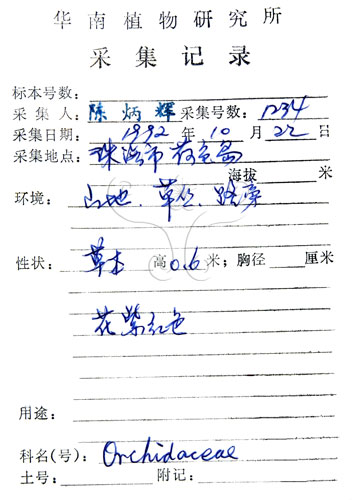 华南植物研究所
采集记录
标本号数：
采集人：陈炳辉 采集号数：1234
采集日期：1992年10月22日
采集地点：珠海市荷包岛
海拔 米
环境：山地、草丛、路旁
性状：草本 高0.6米；胸径 厘米
花紫红色
用途：
科名(号)：Orchidaceae
土号： 附记：